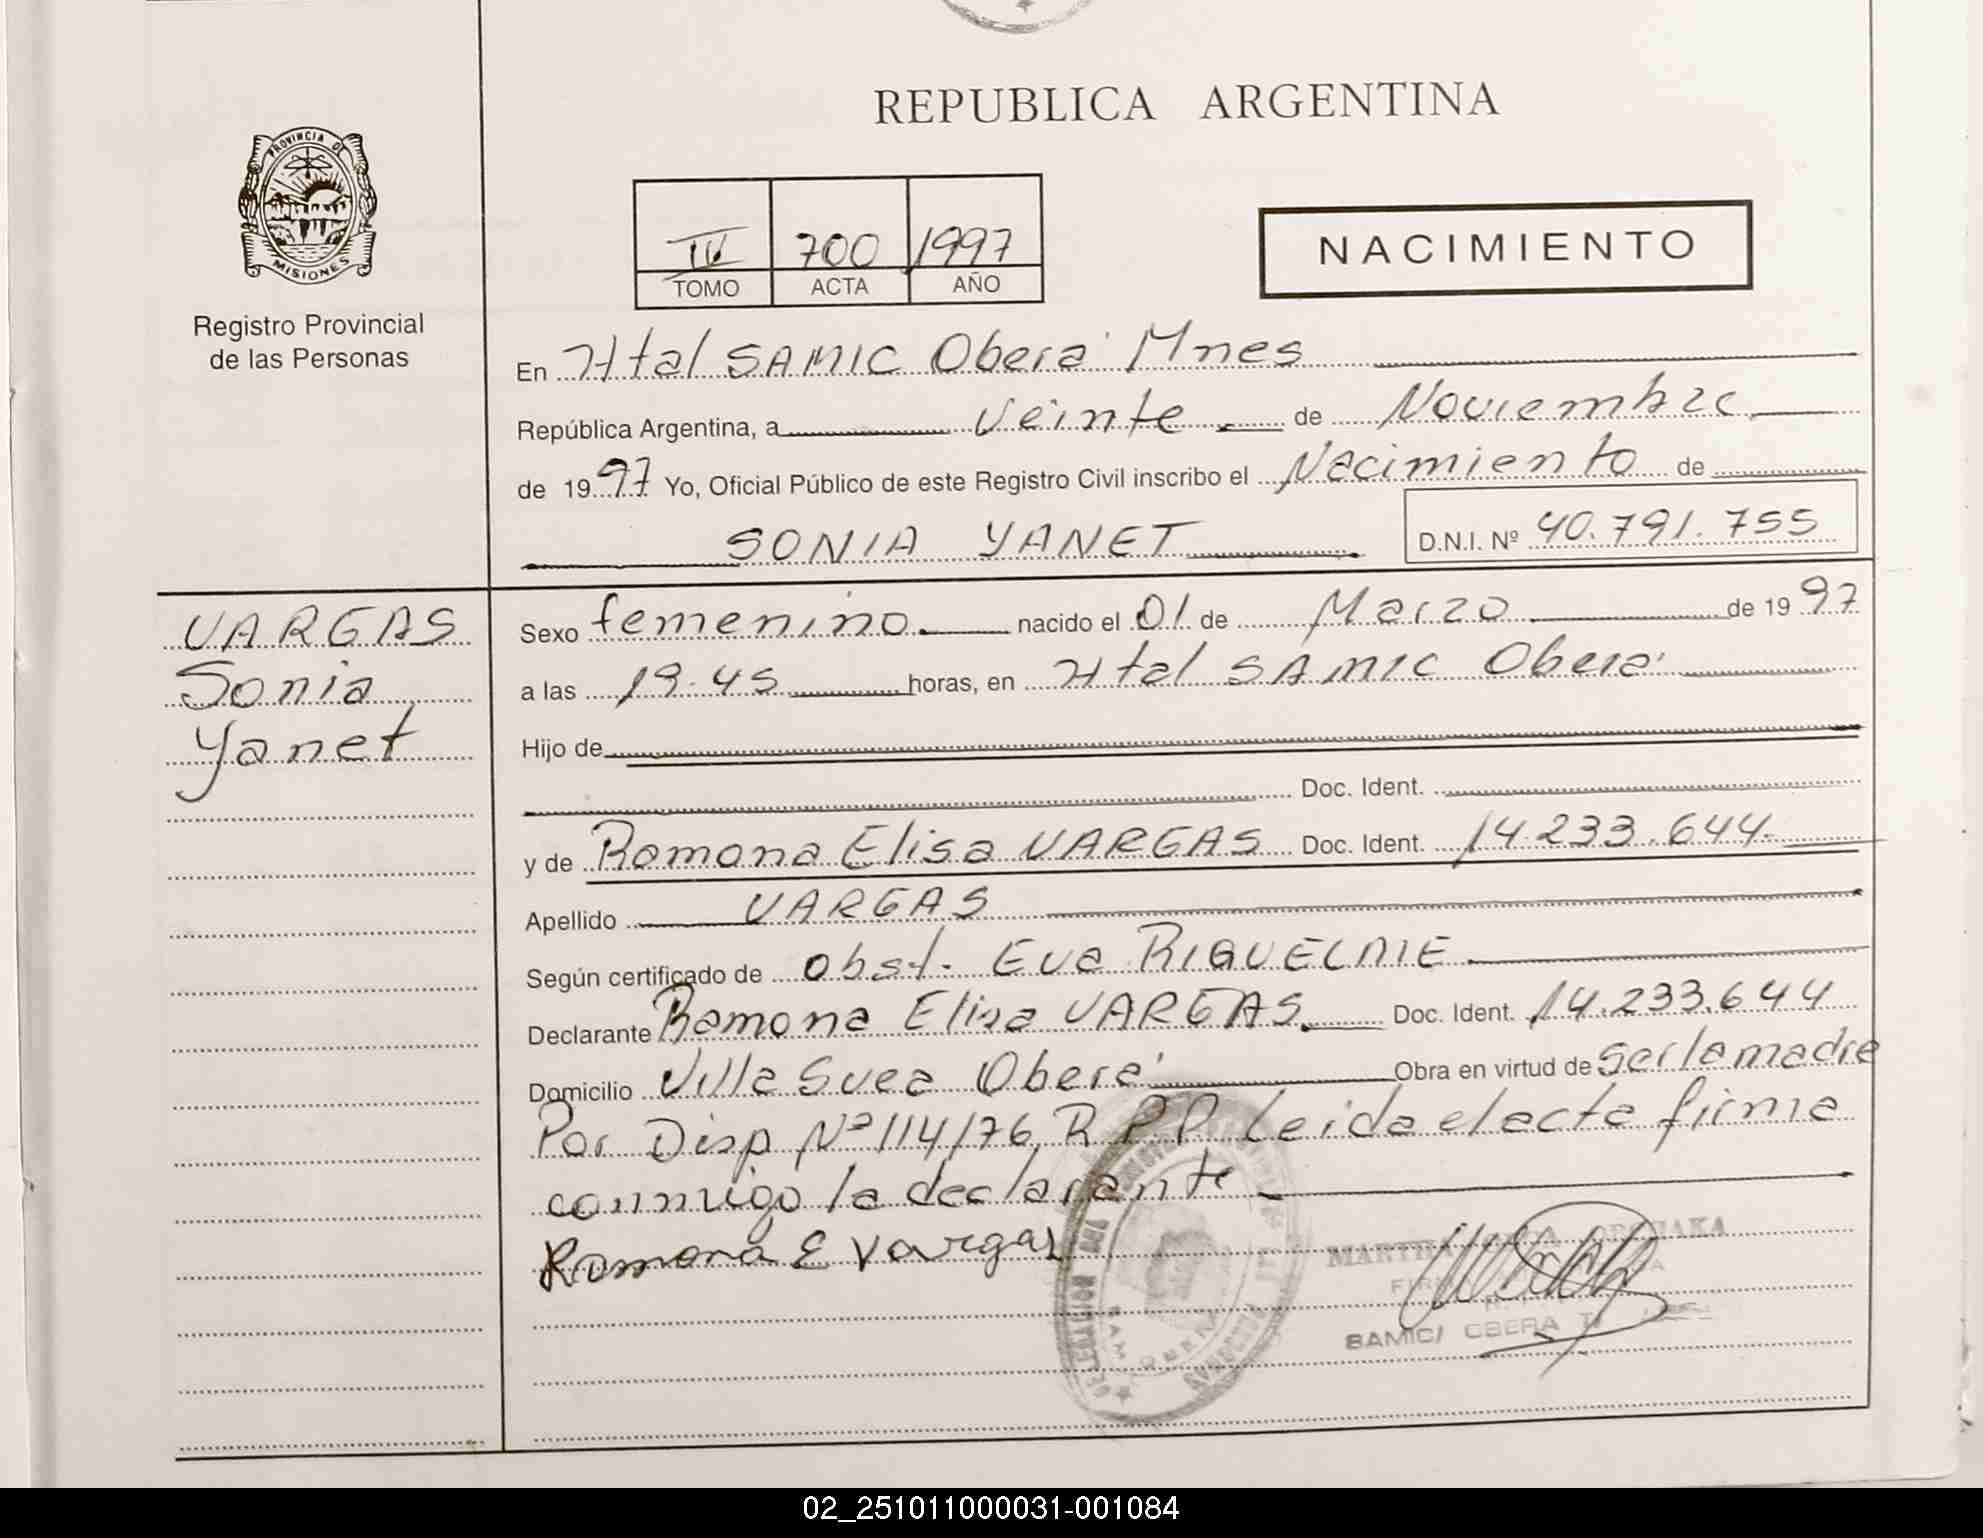 REPUBLICA ARGENTINA
PROVINCIA DE
MISIONES
Registro Provincial
de las Personas
IV 700 1997
TOMO ACTA AÑO
NACIMIENTO
En Htal SAMIC Oberá Mnes
República Argentina, a veinte de Noviembre
de 1997 Yo, Oficial Público de este Registro Civil inscribo el Nacimiento de
SONIA YANET D.N.I. Nº 40.791.755
VARGAS
Sonia
Yanet
Sexo femenino nacido el 01 de Marzo de 1997
a las 19.45 horas, en Htal SAMIC Oberá
Hijo de
Doc. Ident.
y de Ramona Elisa VARGAS Doc. Ident. 14.233.644
Apellido VARGAS
Según certificado de obst. Eva RIQUELME
Declarante Ramona Elisa VARGAS Doc. Ident. 14.233.644
Domicilio Villa Svea Oberá Obra en virtud de ser la madre
Por Disp Nº 114/76 R.P.P. Leida el acta firma
conmigo la declarante
Ramona E Vargas
MARTHA
SAMIC/ OBERA
02_251011000031-001084